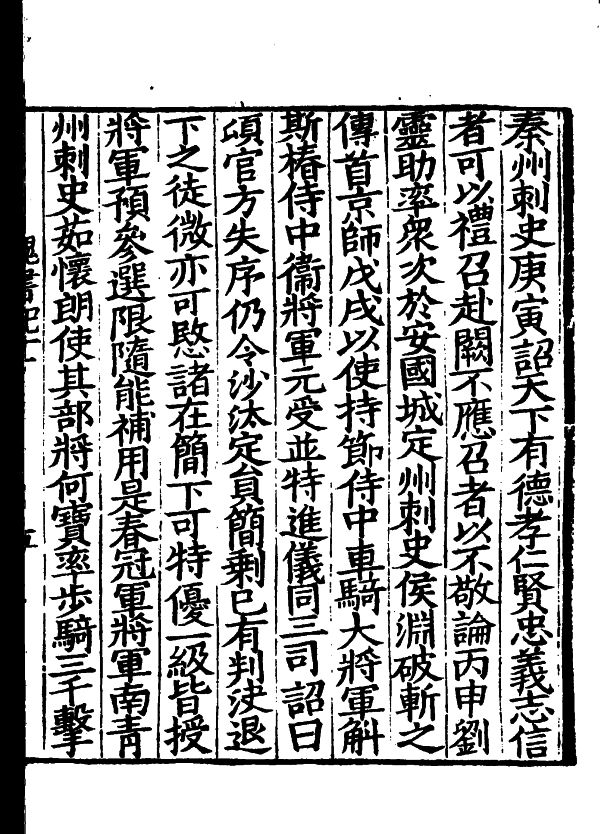 秦州刺史庚寅詔天下有德孝仁賢忠義志信
者可以禮召赴闕不應召者以不敬論丙申劉
靈助率眾次於安國城定州刺史侯淵破斬之
傳首京師戊戌以使持節侍中車騎大將軍斛
斯椿侍中衞將軍元受並特進儀同三司詔曰
頃官方失序仍令沙汰定員簡剩已有判決退
下之徒微亦可愍諸在簡下可特優一級皆授
將軍預參選限隨能補用是春冠軍將軍南青
州刺史茹懷朗使其部將何寶率步騎三千擊